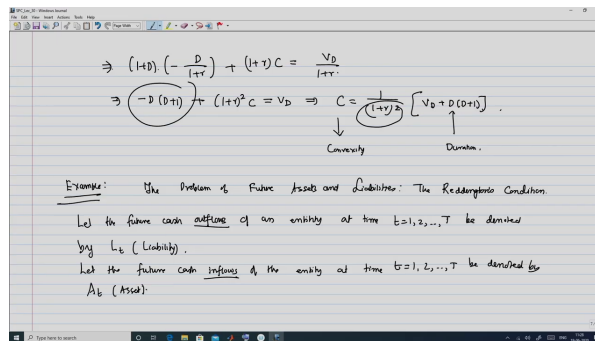 SPC_Lec_59 - Windows Journal
File Edit View Insert Actions Tools Help
Page Width
⇒ (1+D). (- D/(1+r)) + (1+r) C = V_D/(1+r).
⇒ (-D (D+1)) + (1+r)² C = V_D ⇒ C = 1/(1+r)² [V_D + D(D+1)].
Convexity Duration.
Example: The Problem of Future Assets and Liabilities: The Reddington's Condition.
Let the future cash outflows of an entity at time t=1, 2, .., T be denoted
by L_t (Liability).
Let the future cash inflows of the entity at time t=1, 2, .., T be denoted by
A_t (Asset).
Type here to search
ENG